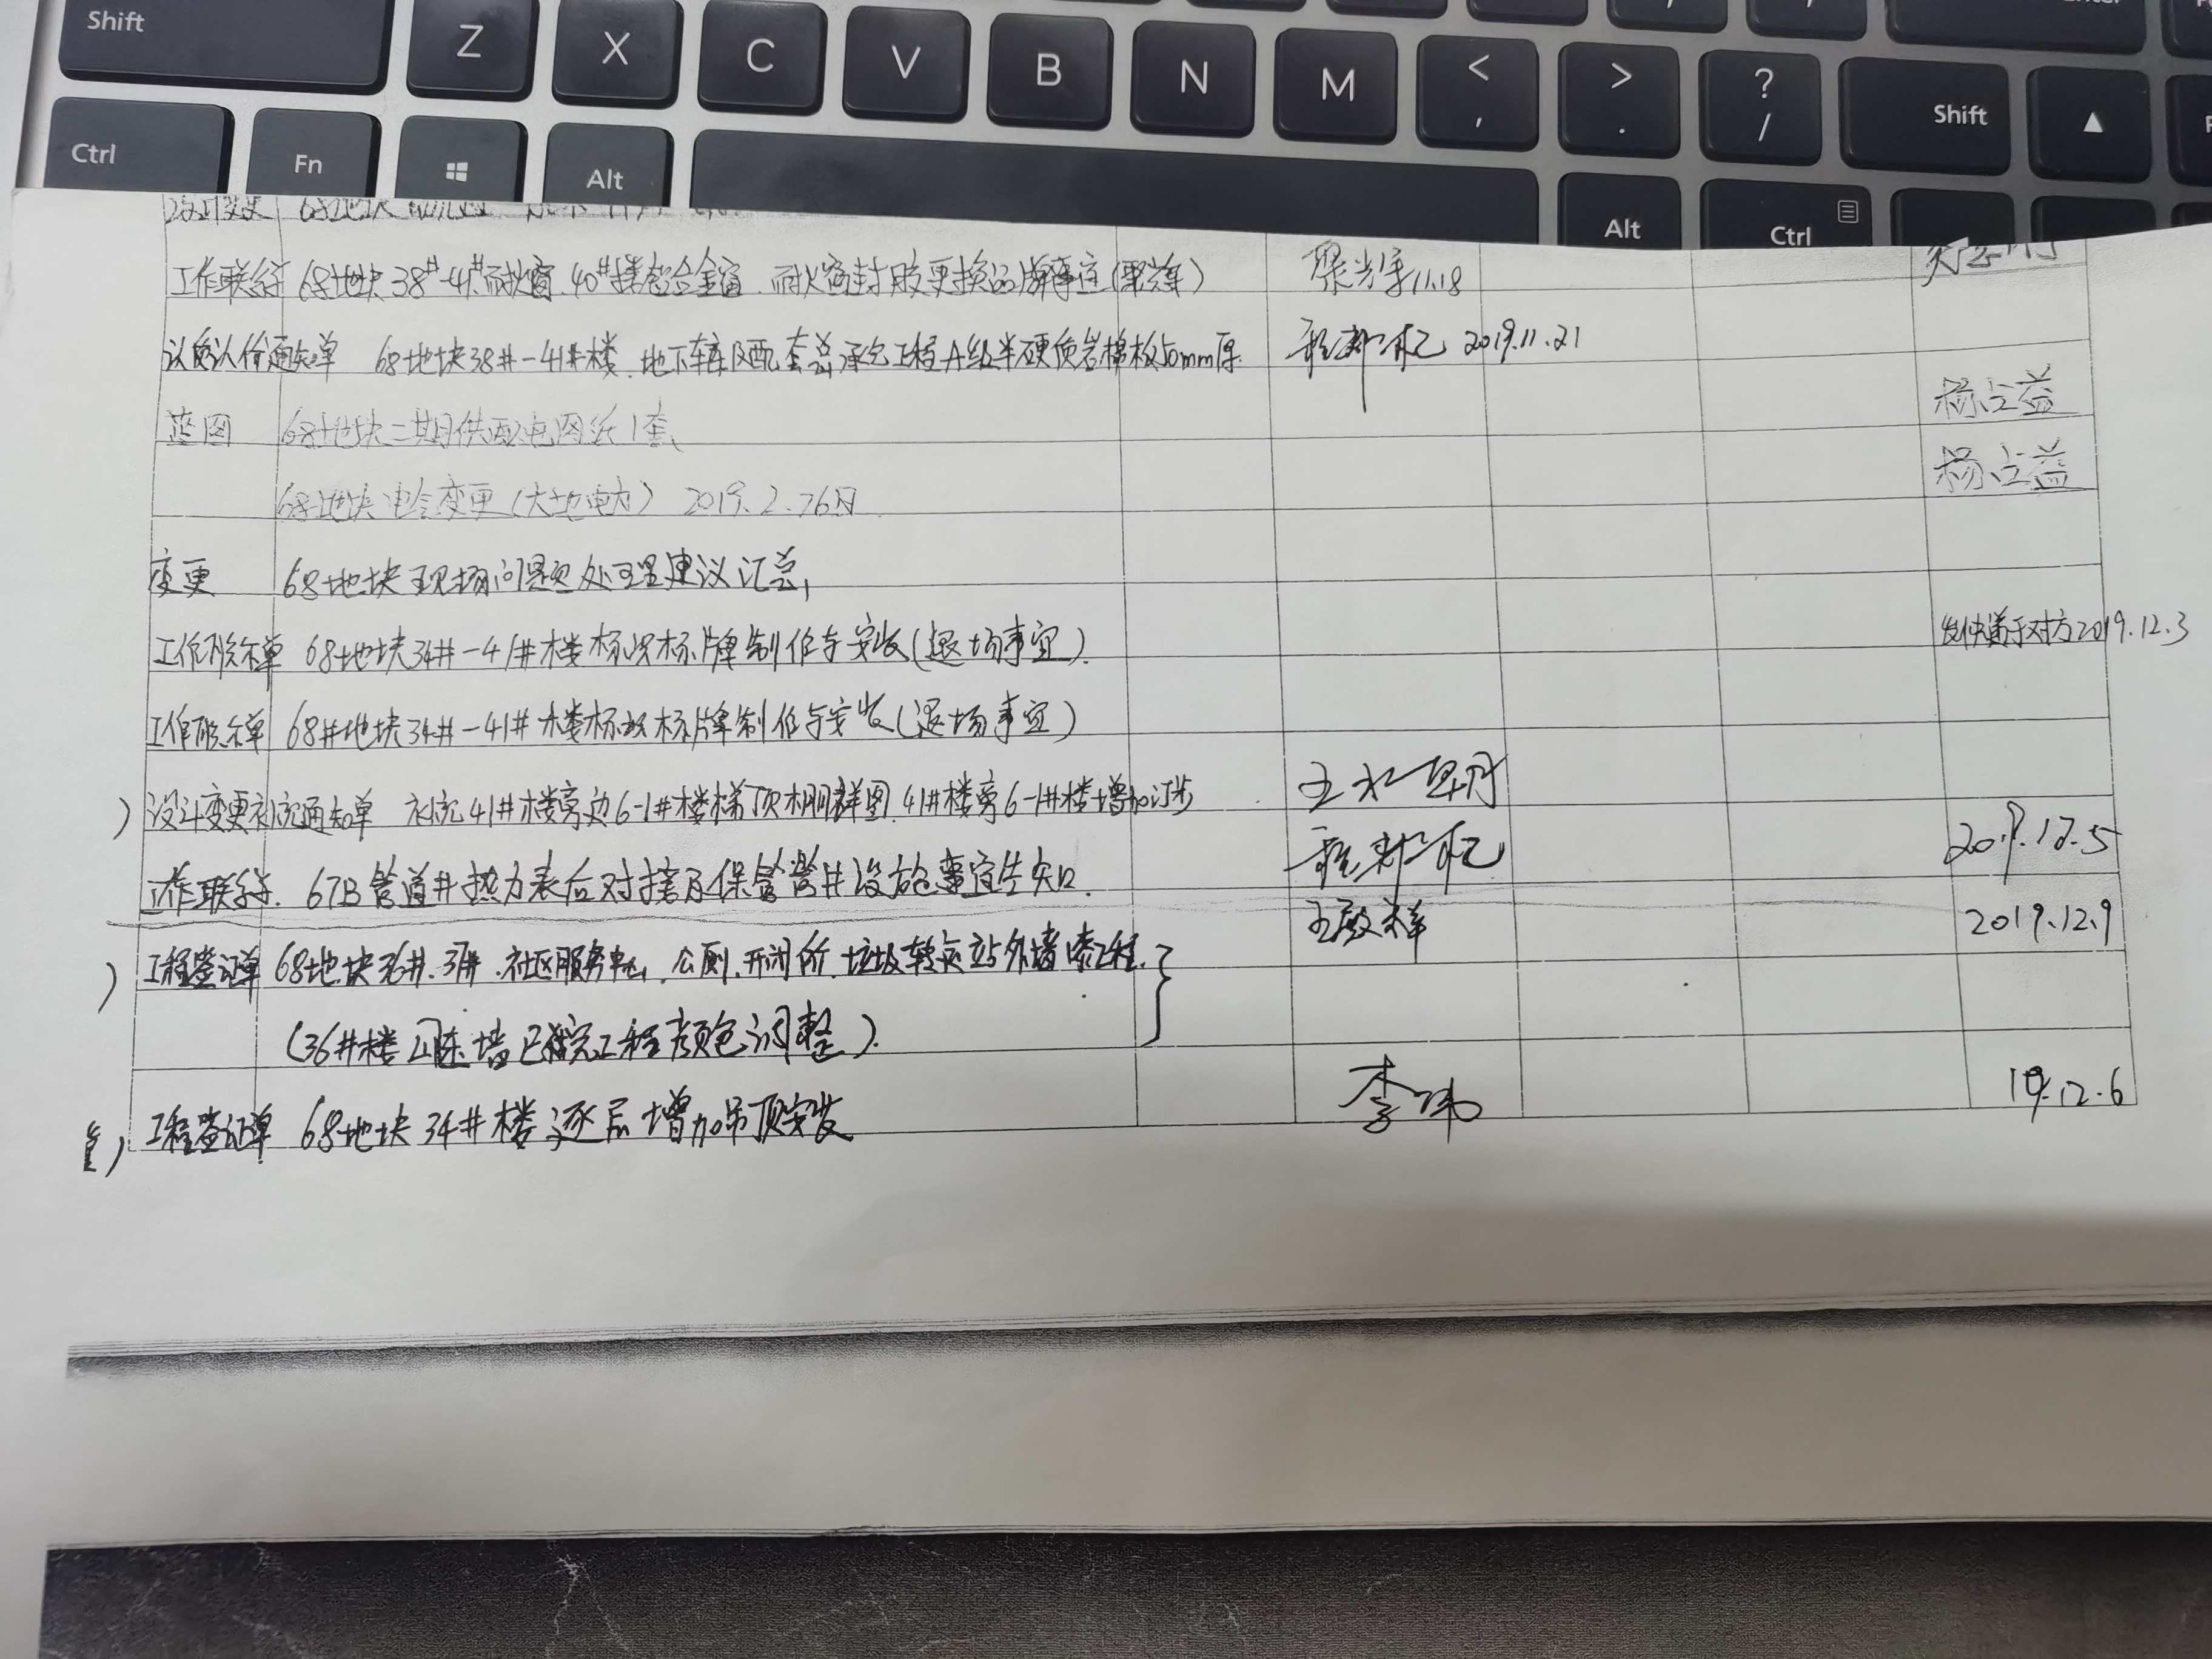 Shift Z X C V B N M < , > . ? / Shift ▲
Ctrl Fn Alt Alt Ctrl
设计变更 68地块
工作联系 68地块38#-41#耐火窗.40#楼 合金窗.耐火窗封胶更换品牌事宜 11.18
认质认价通知单 68地块38#-41#楼.地下车库及配套总承包工程A级半硬质岩棉板50mm厚. 2019.11.21
蓝图 68地块二期供配电图纸1套 杨占益
68地块电气变更(大地电力) 2019.2.26日 杨占益
变更 68地块现场问题处理建议汇总
工作联系单 68地块34#-41#楼标识标牌制作与安装(退场事宜). 对方2019.12.3
工作联系单 68#地块34#-41#楼标识标牌制作与安装(退场事宜)
)设计变更补充通知单 补充41#楼旁边6-1#楼梯顶棚详图.41#楼旁6-1#楼增加 王
工作联系. 67B管道井热力表后对接 保管管井设施事宜告知. 2019.12.5
)工程签证单 68地块36#.37#.社区服务中心.公厕.开闭所.垃圾转运站外墙漆工程. 2019.12.9
(36#楼 东墙已完工程颜色调整).
工程签证单 68地块34#楼逐层增加吊顶安装 李 19.12.6